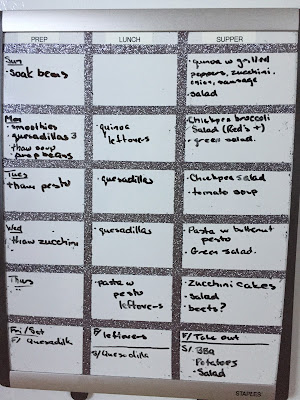 PREP LUNCH SUPPER
Sun
- soak beans
- quinoa w grilled
peppers, zucchini
onion, sausage
- salad
Mon
- smoothies
- quesadillas 3
- thaw soup
prep beans
- quinoa
leftovers
- Chickpea broccoli
Salad (Red's +)
- green salad
Tues
- thaw pesto
- quesadillas
- Chickpea salad
- tomato soup
Wed
- thaw zucchini
- quesadillas
- Pasta w butternut
pesto
- Green salad
Thus
- pasta w
pesto
leftovers
- zucchini cakes
- salad
- beets?
Fri/Sat
F/ Quesadilla
F/ leftovers
S/ Quesadilla
F/ Take out
S/ BBQ
- Potatoes
- Salad
STAPLES